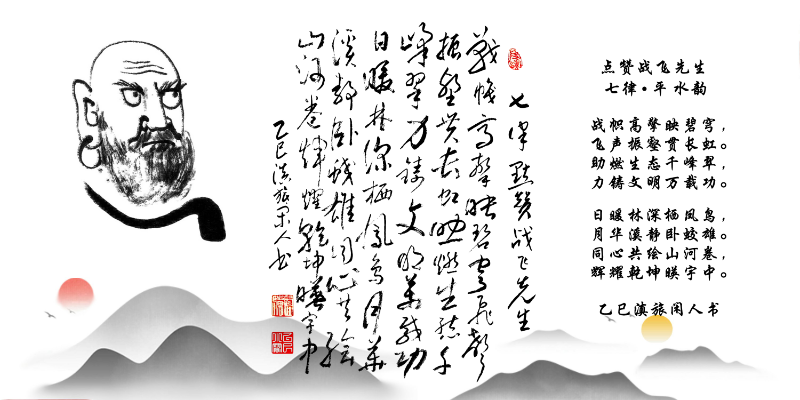 七律 點贊战飞先生
战帜高擎映碧穹飞声
振壑贯长虹助燃生态千
峰翠力铸文明万载功
日暖林深栖凤鸟月华
溪静卧蛟雄同心共绘
山河卷辉耀乾坤暎宇中
乙巳滇旅闲人书
点赞战飞先生
七律·平水韵
战帜高擎映碧穹，
飞声振壑贯长虹。
助燃生态千峰翠，
力铸文明万载功。
日暖林深栖凤鸟，
月华溪静卧蛟雄。
同心共绘山河卷，
辉耀乾坤暎宇中。
乙巳滇旅闲人书